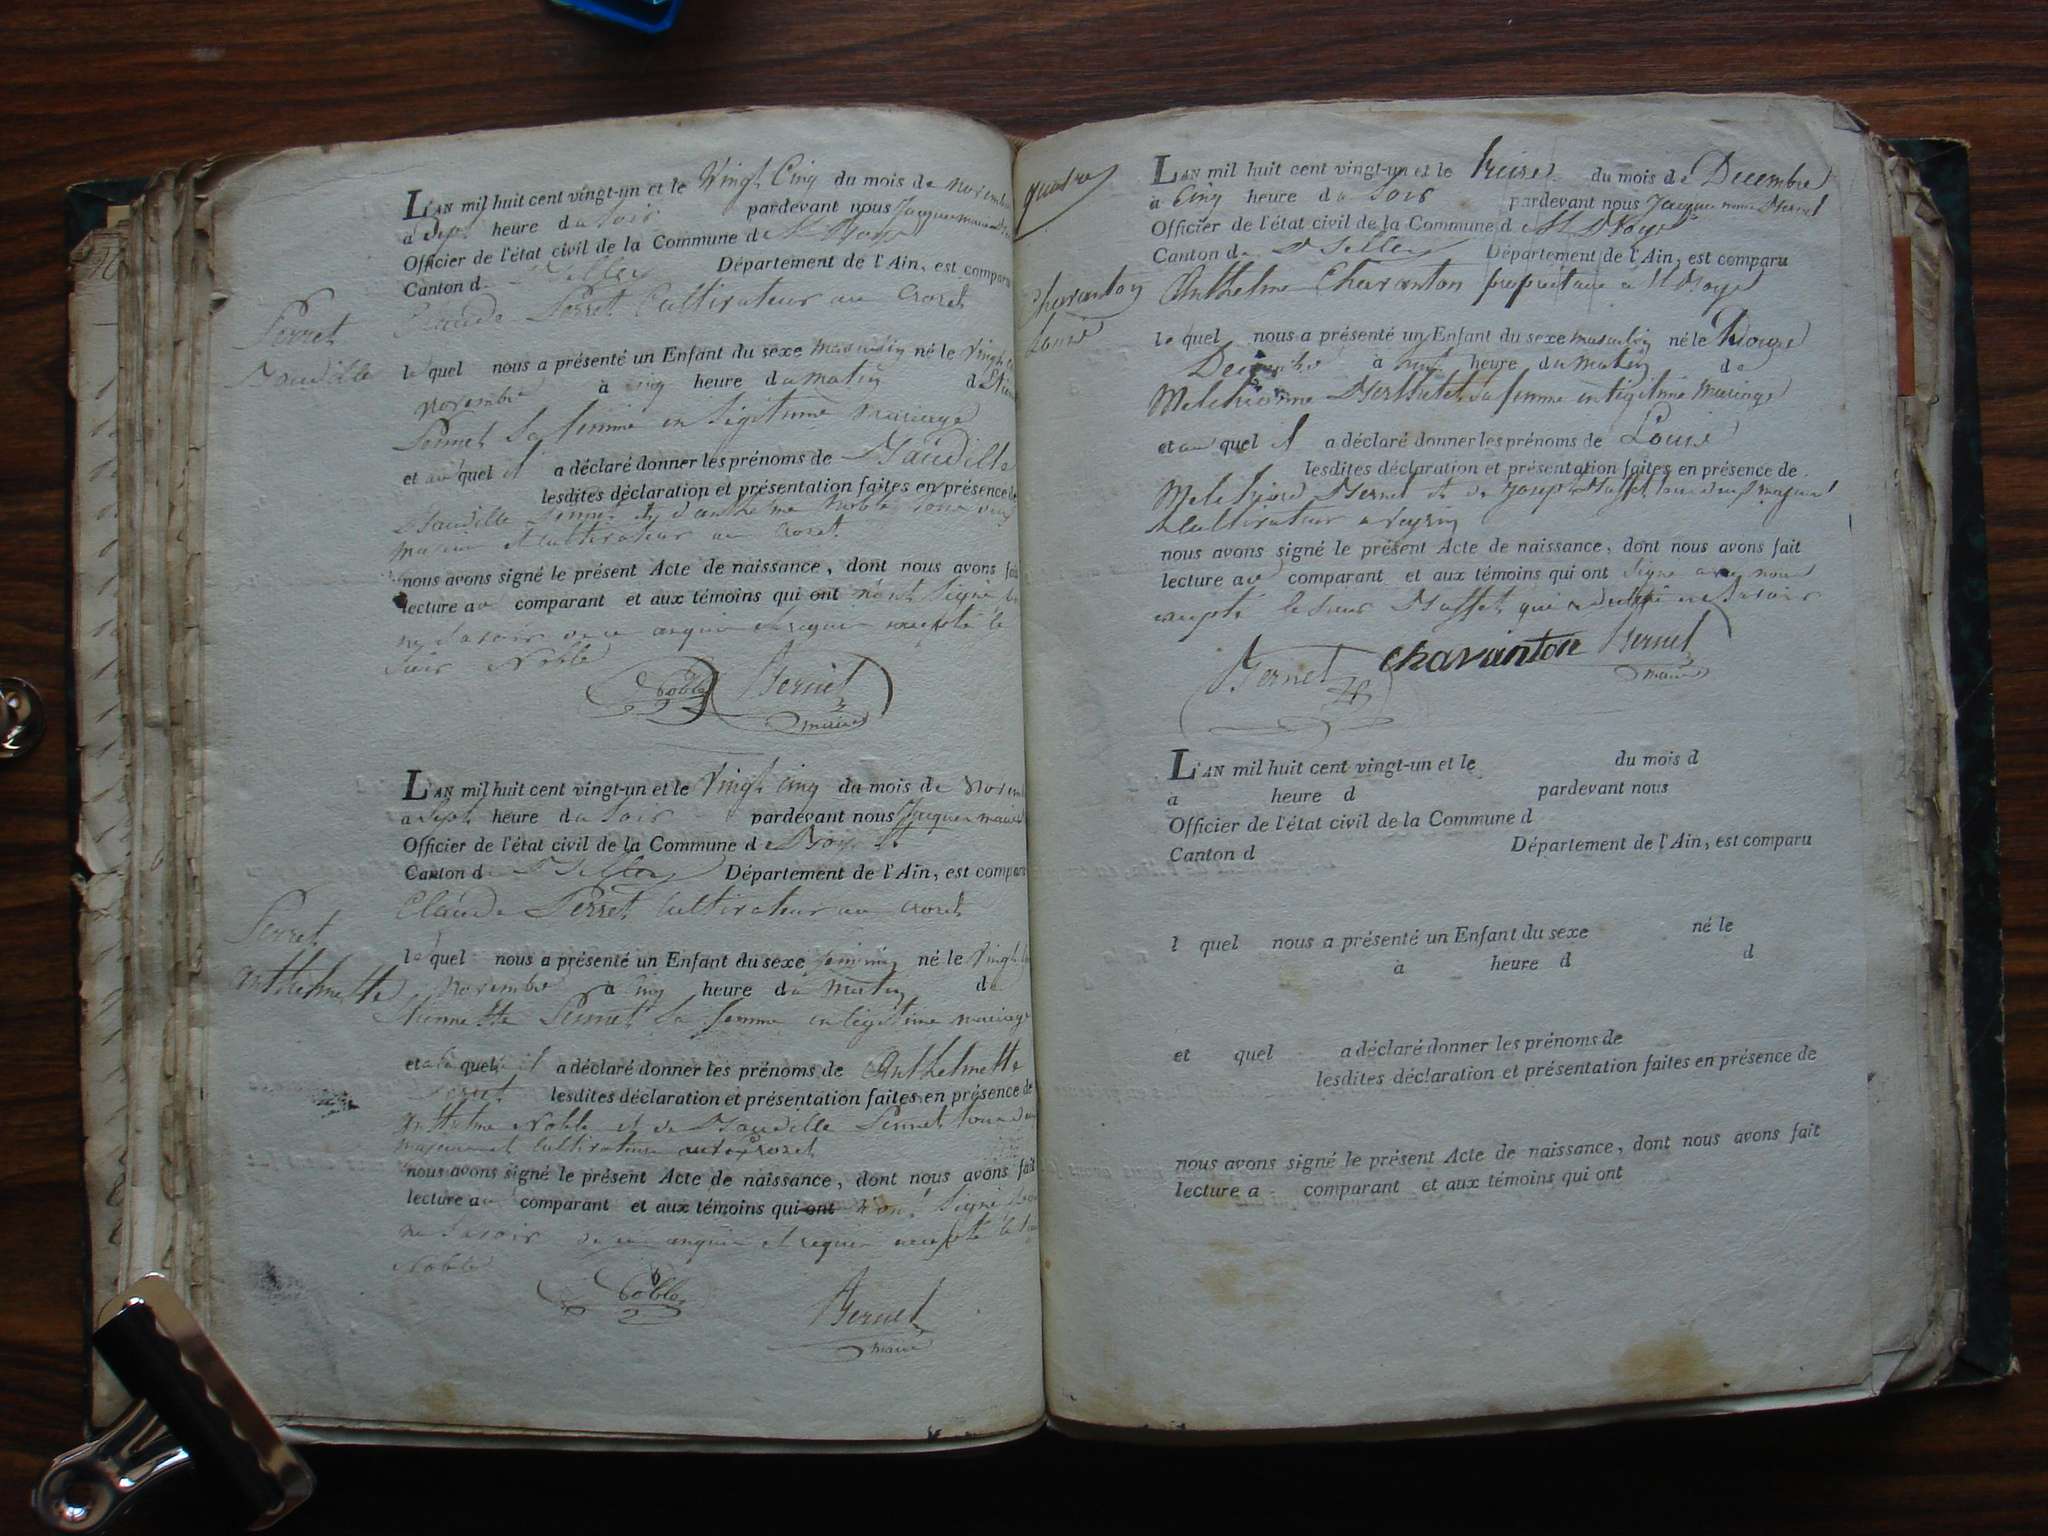 L'AN mil huit cent vingt-un et le Vingt Cinq du mois de novembre
a Sept heure du Soir pardevant nous Jacques
Officier de l'état civil de la Commune de St
Canton d Département de l'Ain, est comparu
Claude Perret Cultivateur au Crozet
Perret
Baudille
le quel nous a présenté un Enfant du sexe masculin né le Vingt
novembre à cinq heure du matin d
sa femme en légitime mariage
et au quel il a déclaré donner les prénoms de Baudille
lesdites déclaration et présentation faites en présence de
Baudille et d'anthelme Noble tous deux
majeur et Cultivateur au Crozet
nous avons signé le présent Acte de naissance, dont nous avons fait
lecture au comparant et aux témoins qui ont n'ont Signé
ne Savoir de ce enquis et requis excepté le
Sieur Noble
Noble Bernel
maire
L'AN mil huit cent vingt-un et le Vingt cinq du mois de
a Sept heure du Soir pardevant nous Jacques
Officier de l'état civil de la Commune de
Canton d Département de l'Ain, est comparu
Claude Perret Cultivateur au Crozet
Perret
anthelmette
le quel nous a présenté un Enfant du sexe féminin né le Vingt
Novembre à cinq heure du Matin d
sa femme en légitime mariage
et a la quelle il a déclaré donner les prénoms de Anthelmette
lesdites déclaration et présentation faites en présence de
anthelme Noble et de Baudille tous deux
majeur et Cultivateur au Crozet
nous avons signé le présent Acte de naissance, dont nous avons fait
lecture au comparant et aux témoins qui ont n'ont Signé
ne Savoir de ce enquis et requis excepté le
Noble
Noble
Bernel
maire
quatre
L'AN mil huit cent vingt-un et le treize du mois de Decembre
à Cinq heure du Soir pardevant nous Jacques Bernel
Officier de l'état civil de la Commune d St
Canton d Département de l'Ain, est comparu
Charanton
Louis
Anthelme Charanton propriétaire à St
le quel nous a présenté un Enfant du sexe masculin né le Douze
Decembre à huit heure du Matin de
Berthet sa femme en légitime Mariage
et au quel il a déclaré donner les prénoms de Louis
lesdites déclaration et présentation faites en présence de
Bernel et de Joseph tous deux majeur
Cultivateur
nous avons signé le présent Acte de naissance, dont nous avons fait
lecture au comparant et aux témoins qui ont Signé avec nous
excepté le Sieur qui a déclaré ne Savoir
Bernel charanton Bernel
maire
L'AN mil huit cent vingt-un et le du mois d
a heure d pardevant nous
Officier de l'état civil de la Commune d
Canton d Département de l'Ain, est comparu
l quel nous a présenté un Enfant du sexe né le
à heure d d
et quel a déclaré donner les prénoms de
lesdites déclaration et présentation faites en présence de
nous avons signé le présent Acte de naissance, dont nous avons fait
lecture a comparant et aux témoins qui ont